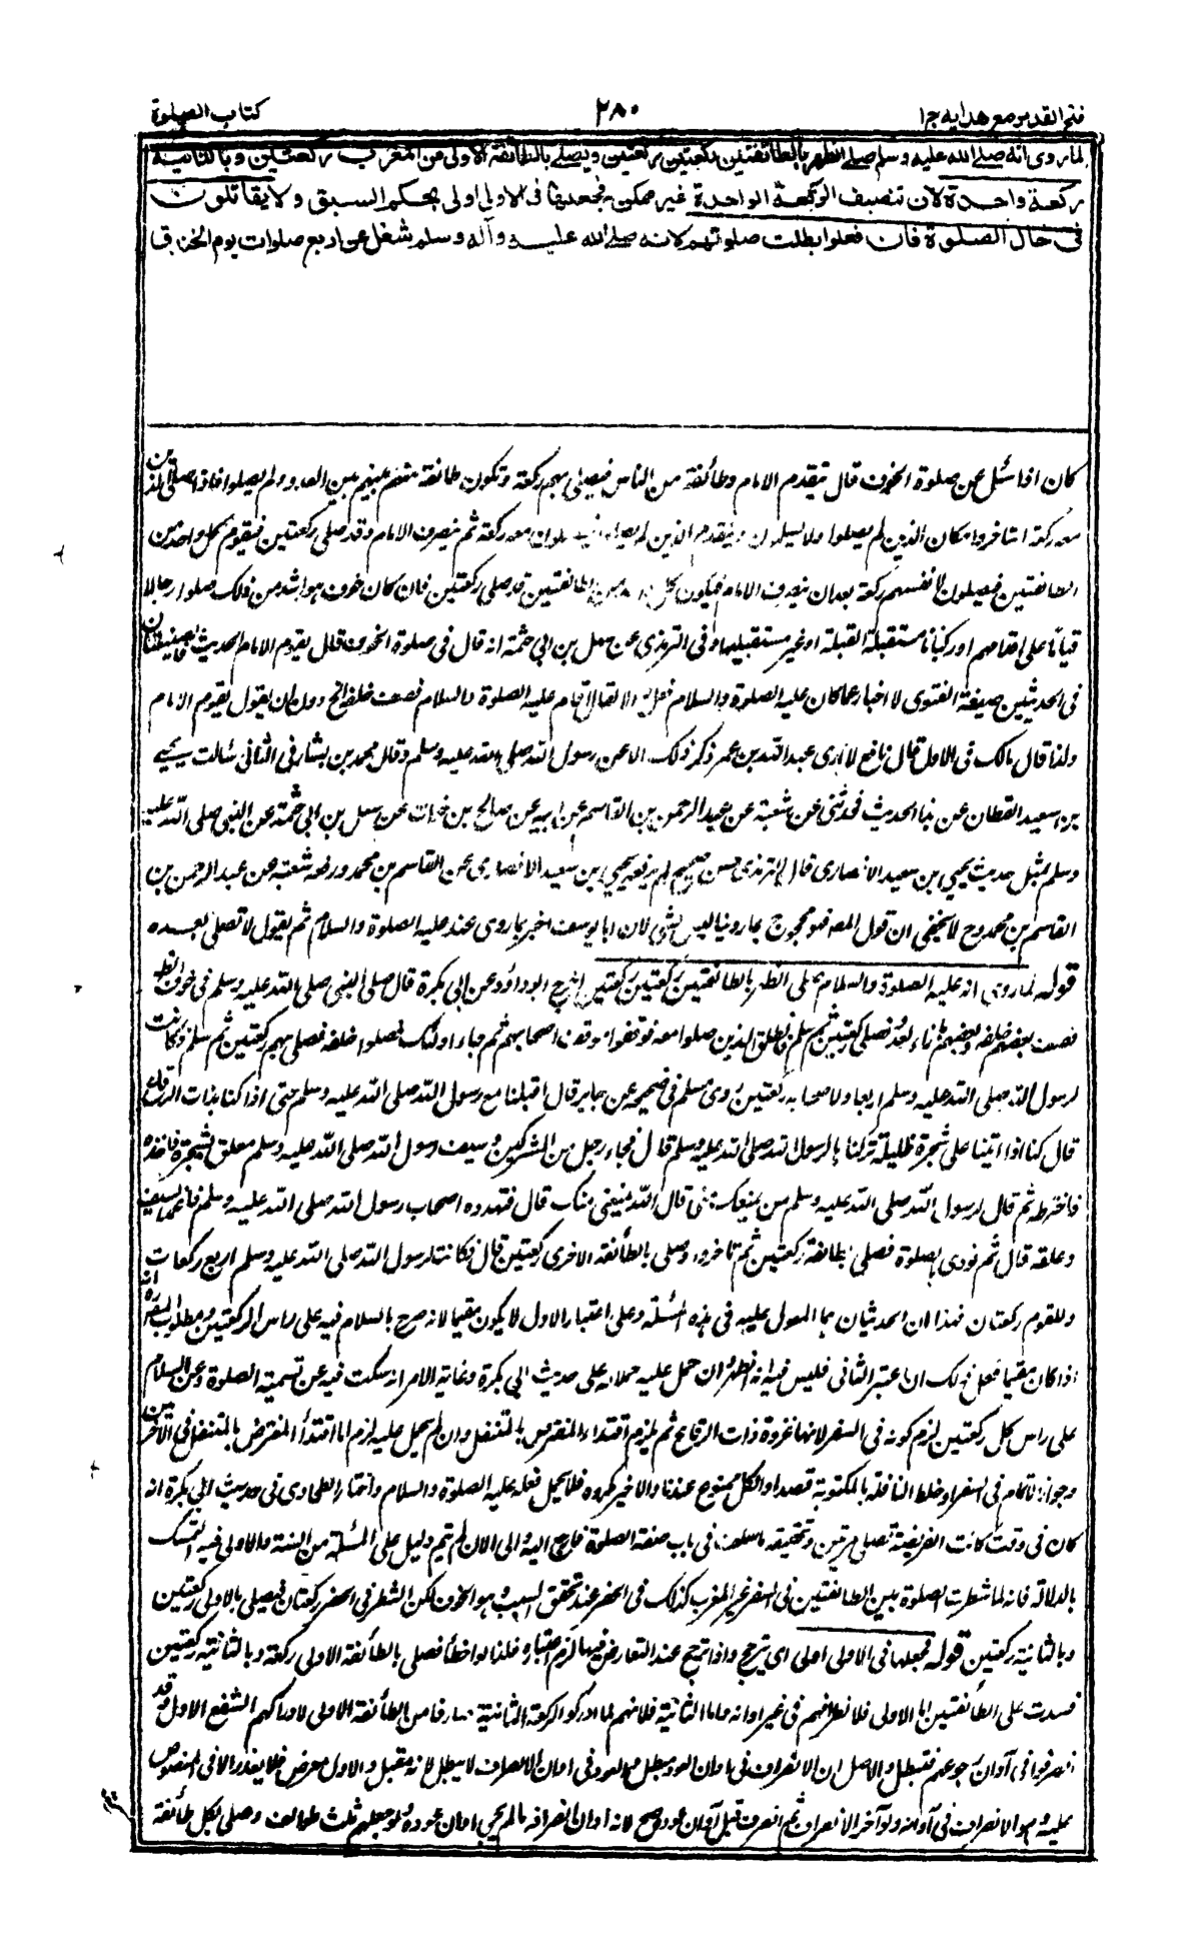 فتح القدير مع هدايه ج١
٢٨٠
كتاب الصلوة
لما روى انه صلى الله عليه وسلم صلى الظهر بالطائفتين ركعتين ركعتين ويصلى بالطائفة الاولى من المغرب ركعتين وبالثانية
ركعة واحدة لان تنصيف الركعة الواحدة غير ممكن فجعلها فى الاولى اولى بحكم السبق ولا يقاتلون
فى حال الصلوة فان فعلوا بطلت صلوتهم لانه صلى الله عليه وآله وسلم شغل عن اربع صلوات يوم الخندق
كان اذا سئل عن صلوة الخوف قال يتقدم الامام وطائفة من الناس فيصلى بهم ركعة وتكون طائفة منهم بينهم وبين العدو ولم يصلوا فاذا صلى الذين
معه ركعة استاخروا مكان الذين لم يصلوا ولا يسلمون ويتقدم الذين لم يصلوا فيصلون معه ركعة ثم ينصرف الامام وقد صلى ركعتين فيقوم كل واحد من
الطائفتين فيصلون لانفسهم ركعة بعد ان ينصرف الامام فيكون كل واحد من الطائفتين قد صلى ركعتين فان كان خوف هو اشد من ذلك صلوا رجالا
قياما على اقدامهم او ركبانا مستقبلة القبلة او غير مستقبليها وفى الترمذى عن سهل بن ابى حثمة انه قال فى صلوة الخوف قال يقوم الامام الحديث
فى الحديثين صيغة الفتوى لا اخبار عما كان عليه الصلوة والسلام فعله والا لقال قام عليه الصلوة والسلام فصف خلفه الخ دون ان يقول يقوم الامام
ولذا قال مالك فى الاول قال نافع لا ارى عبد الله بن عمر ذكر ذلك الا عن رسول الله صلى الله عليه وسلم وقال محمد بن بشار فى الثانى سالت يحيى
بن سعيد القطان عن هذا الحديث فحدثنى عن شعبة عن عبد الرحمن بن القاسم عن ابيه عن صالح بن خوات عن سهل بن ابى حثمة عن النبى صلى الله عليه
وسلم بمثل حديث يحيى ابن سعيد الانصارى قال الترمذى حسن صحيح لم يرفعه يحيى ابن سعيد الانصارى عن القاسم بن محمد ورفعه شعبة عن عبد الرحمن بن
القاسم بن محمد وح لا يخفى ان قول المصنف وهو محجوج بما روينا ليس بشئ لان ابا يوسف اخبر بما روى عنه عليه الصلوة والسلام ثم يقول لا تصلى بعده
قوله لما روى انه عليه الصلوة والسلام صلى الظهر بالطائفتين ركعتين ركعتين اخرج ابو داؤد عن ابى بكرة قال صلى النبى صلى الله عليه وسلم فى خوف الظهر
فصف بعضهم خلفه وبعضهم بازاء العدو فصلى ركعتين ثم سلم فانطلق الذين صلوا معه فوقفوا موقف اصحابهم ثم جاء اولئك فصلوا خلفه فصلى بهم ركعتين ثم سلم فكانت
لرسول الله صلى الله عليه وسلم اربعا ولاصحابه ركعتين وروى مسلم فى صحيحه عن جابر قال اقبلنا مع رسول الله صلى الله عليه وسلم حتى اذا كنا بذات الرقاع
قال كنا اذا اتينا على شجرة ظليلة تركناها لرسول الله صلى الله عليه وسلم قال فجاء رجل من المشركين وسيف رسول الله صلى الله عليه وسلم معلق بشجرة فاخذه
فاخترطه ثم قال لرسول الله صلى الله عليه وسلم من يمنعك منى قال الله يمنعنى منك قال فتهدده اصحاب رسول الله صلى الله عليه وسلم فاغمد السيف
وعلقه قال ثم نودى بالصلوة فصلى بطائفة ركعتين ثم تاخروا وصلى بالطائفة الاخرى ركعتين قال فكانت لرسول الله صلى الله عليه وسلم اربع ركعات
وللقوم ركعتان فهذا ان الحديثان هما المعول عليه فى هذه المسئلة وعلى اعتبار الاول لا يكون مقيما لانه صرح بالسلام فيه على راس الركعتين ومطلوب المصنف انه
اذا كان مقيما فعل ذلك ان اعتبر الثانى فليس فيه انه الظهر ان حمل عليه حملا له على حديث ابى بكرة وغاية الامر انه سكت فيه عن تسمية الصلوة وعن السلام
على راس كل ركعتين لزم كونه فى السفر لانها غزوة ذات الرقاع ثم يلزم اقتداء المفترض بالمتنفل وان لم يحمل عليه لزم اما اقتداء المفترض بالمتنفل فى الآخريين
وجواز الاتمام فى السفر او خلط النافلة بالمكتوبة قصدا والكل ممنوع عندنا والاخير مكروه فلا يحمل فعله عليه الصلوة والسلام واختار الطحاوى فى حديث ابى بكرة انه
كان فى وقت كانت الفريضة تصلى مرتين وتحقيقه ما سلف فى باب صفة الصلوة فارجع اليه والى الان لم يتم دليل على المسئلة من السنة والاولى فيه التمسك
بالدلالة فانه لما شطرت الصلوة بين الطائفتين فى السفر غير المغرب كذلك فى الحضر عند تحقق السبب وهو الخوف لكن الشطر فى الحضر ركعتان فيصلى بالاولى ركعتين
وبالثانية ركعتين قوله فجعلها فى الاولى اولى اى يترجح واذا ترجح عند التعارض فيها لزم اعتباره فلذا لو اخطأ فصلى بالطائفة الاولى ركعة وبالثانية ركعتين
فسدت على الطائفتين اما الاولى فلانصرافهم فى غير اوانه واما الثانية فلانهم لما ادركوا الركعة الثانية صاروا من الطائفة الاولى لادراكهم الشفع الاول وقد
انصرفوا فى آوان رجوعهم فتبطل والاصل ان الانصراف فى اوان العود مبطل والعود فى اوان الانصراف لا يبطل لانه مقبل والاول معرض فلا يعذر الا فى المنصوص
عليه وهو الانصراف فى آوانه ولو آخر الانصراف ثم انصرف قبل آوان عوده صح لانه اوان انصرافه ما لم يجئ اوان عوده ولو جعلهم ثلث طوائف وصلى بكل طائفة